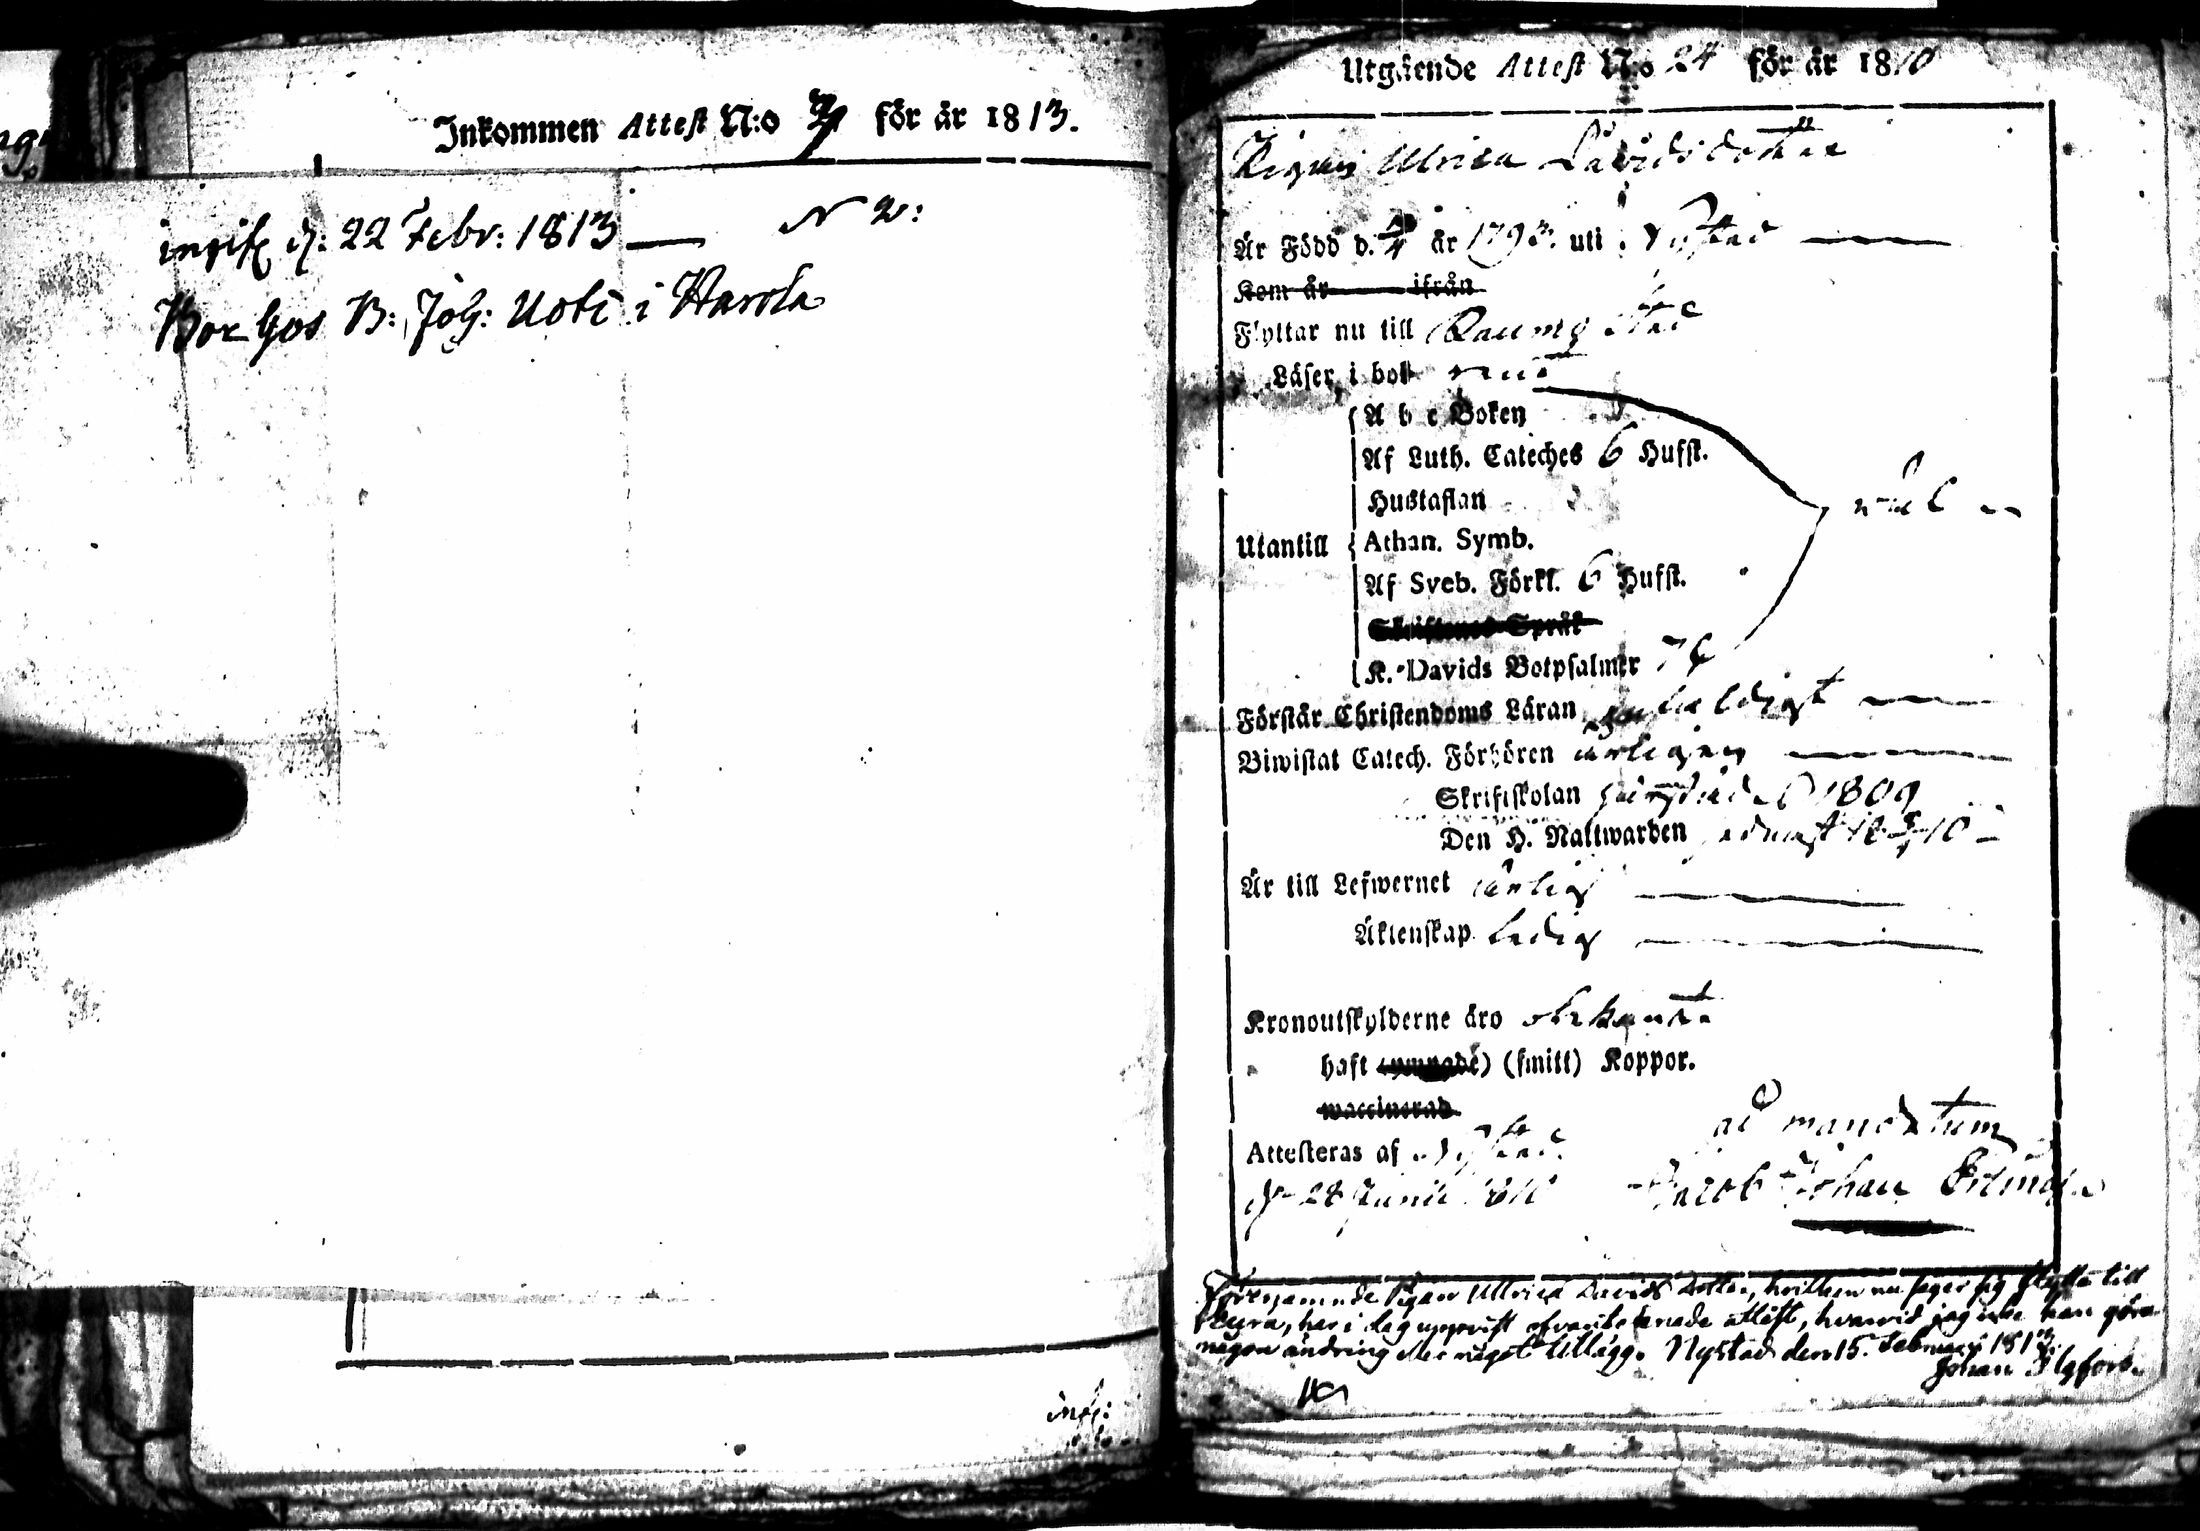 Inkommen Attest N:o för år 1813.
d: 22 Febr: 1813 — N 2:
Bor hos B: Joh: Uoti i Harola
Utgående Attest N:o 24 för år 1810
Pigan Ulrica Davidsdotter
Är Född d. år 1793. uti Nystad
Kom år ifrån
Flyttar nu till Raumo Stad
Läser i bok
A b c Boken
Af Luth. Cateches 6 Hufst.
Hustaflan
wäl
Utantill Athan. Symb.
Af Sveb. Förkl. 6 Hufst.
Skriftenes Språk
K. Davids Botpsalmer
Förstår Christendoms Läran enfaldigt
Biwistat Catech. Förhören årligen
Skriftskolan 1809
Den H. Nattwarden
Är till Lefwernet ärlig
Äktenskap ledig
Kronoutskylderne äro obekanta
haft (ymnade) (smitt) Koppor.
waccinerad
ad mandatum
Attesteras af Nystad
d 28 Junii 1810 Jacob Johan
Förenämnde Pigan Ullrica Davids dotter, hvilken nu säger sig flytta till
har i dag uppvist attest, hvarvid jag icke kan göra
någon ändring eller något tillägg. Nystad den 15. Februarii 1813.
Johan